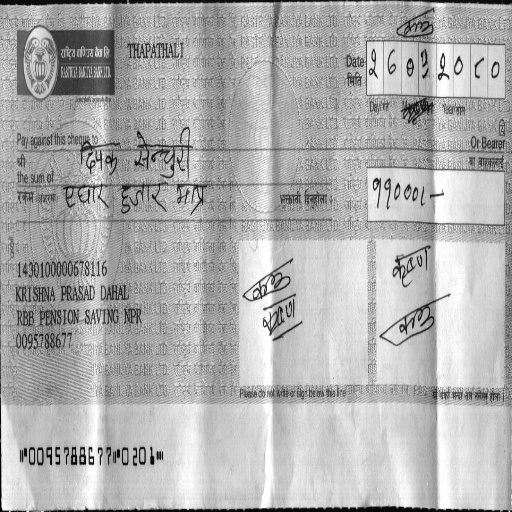 राष्ट्रिय वाणिज्य बैंक लि.
RASTRIYA BANIJYA BANK LTD.
THAPATHALI
Date
मिति
2 6 0 3 2 0 8 0
Day/गते
Year/साल
Pay against this cheque to
श्री
दिपक सेन्चुरी
Or Bearer
वा वाहकलाई
the sum of
रकम
एघार हजार मात्र
भुक्तानी दिनुहोला ।
११०००।-
1430100000678116
KRISHNA PRASAD DAHAL
RBB PENSION SAVING NPR
0095788677
कृष्ण
कृष्ण
Please do not write or sign below this line
⑈0095788677⑈0201⑈